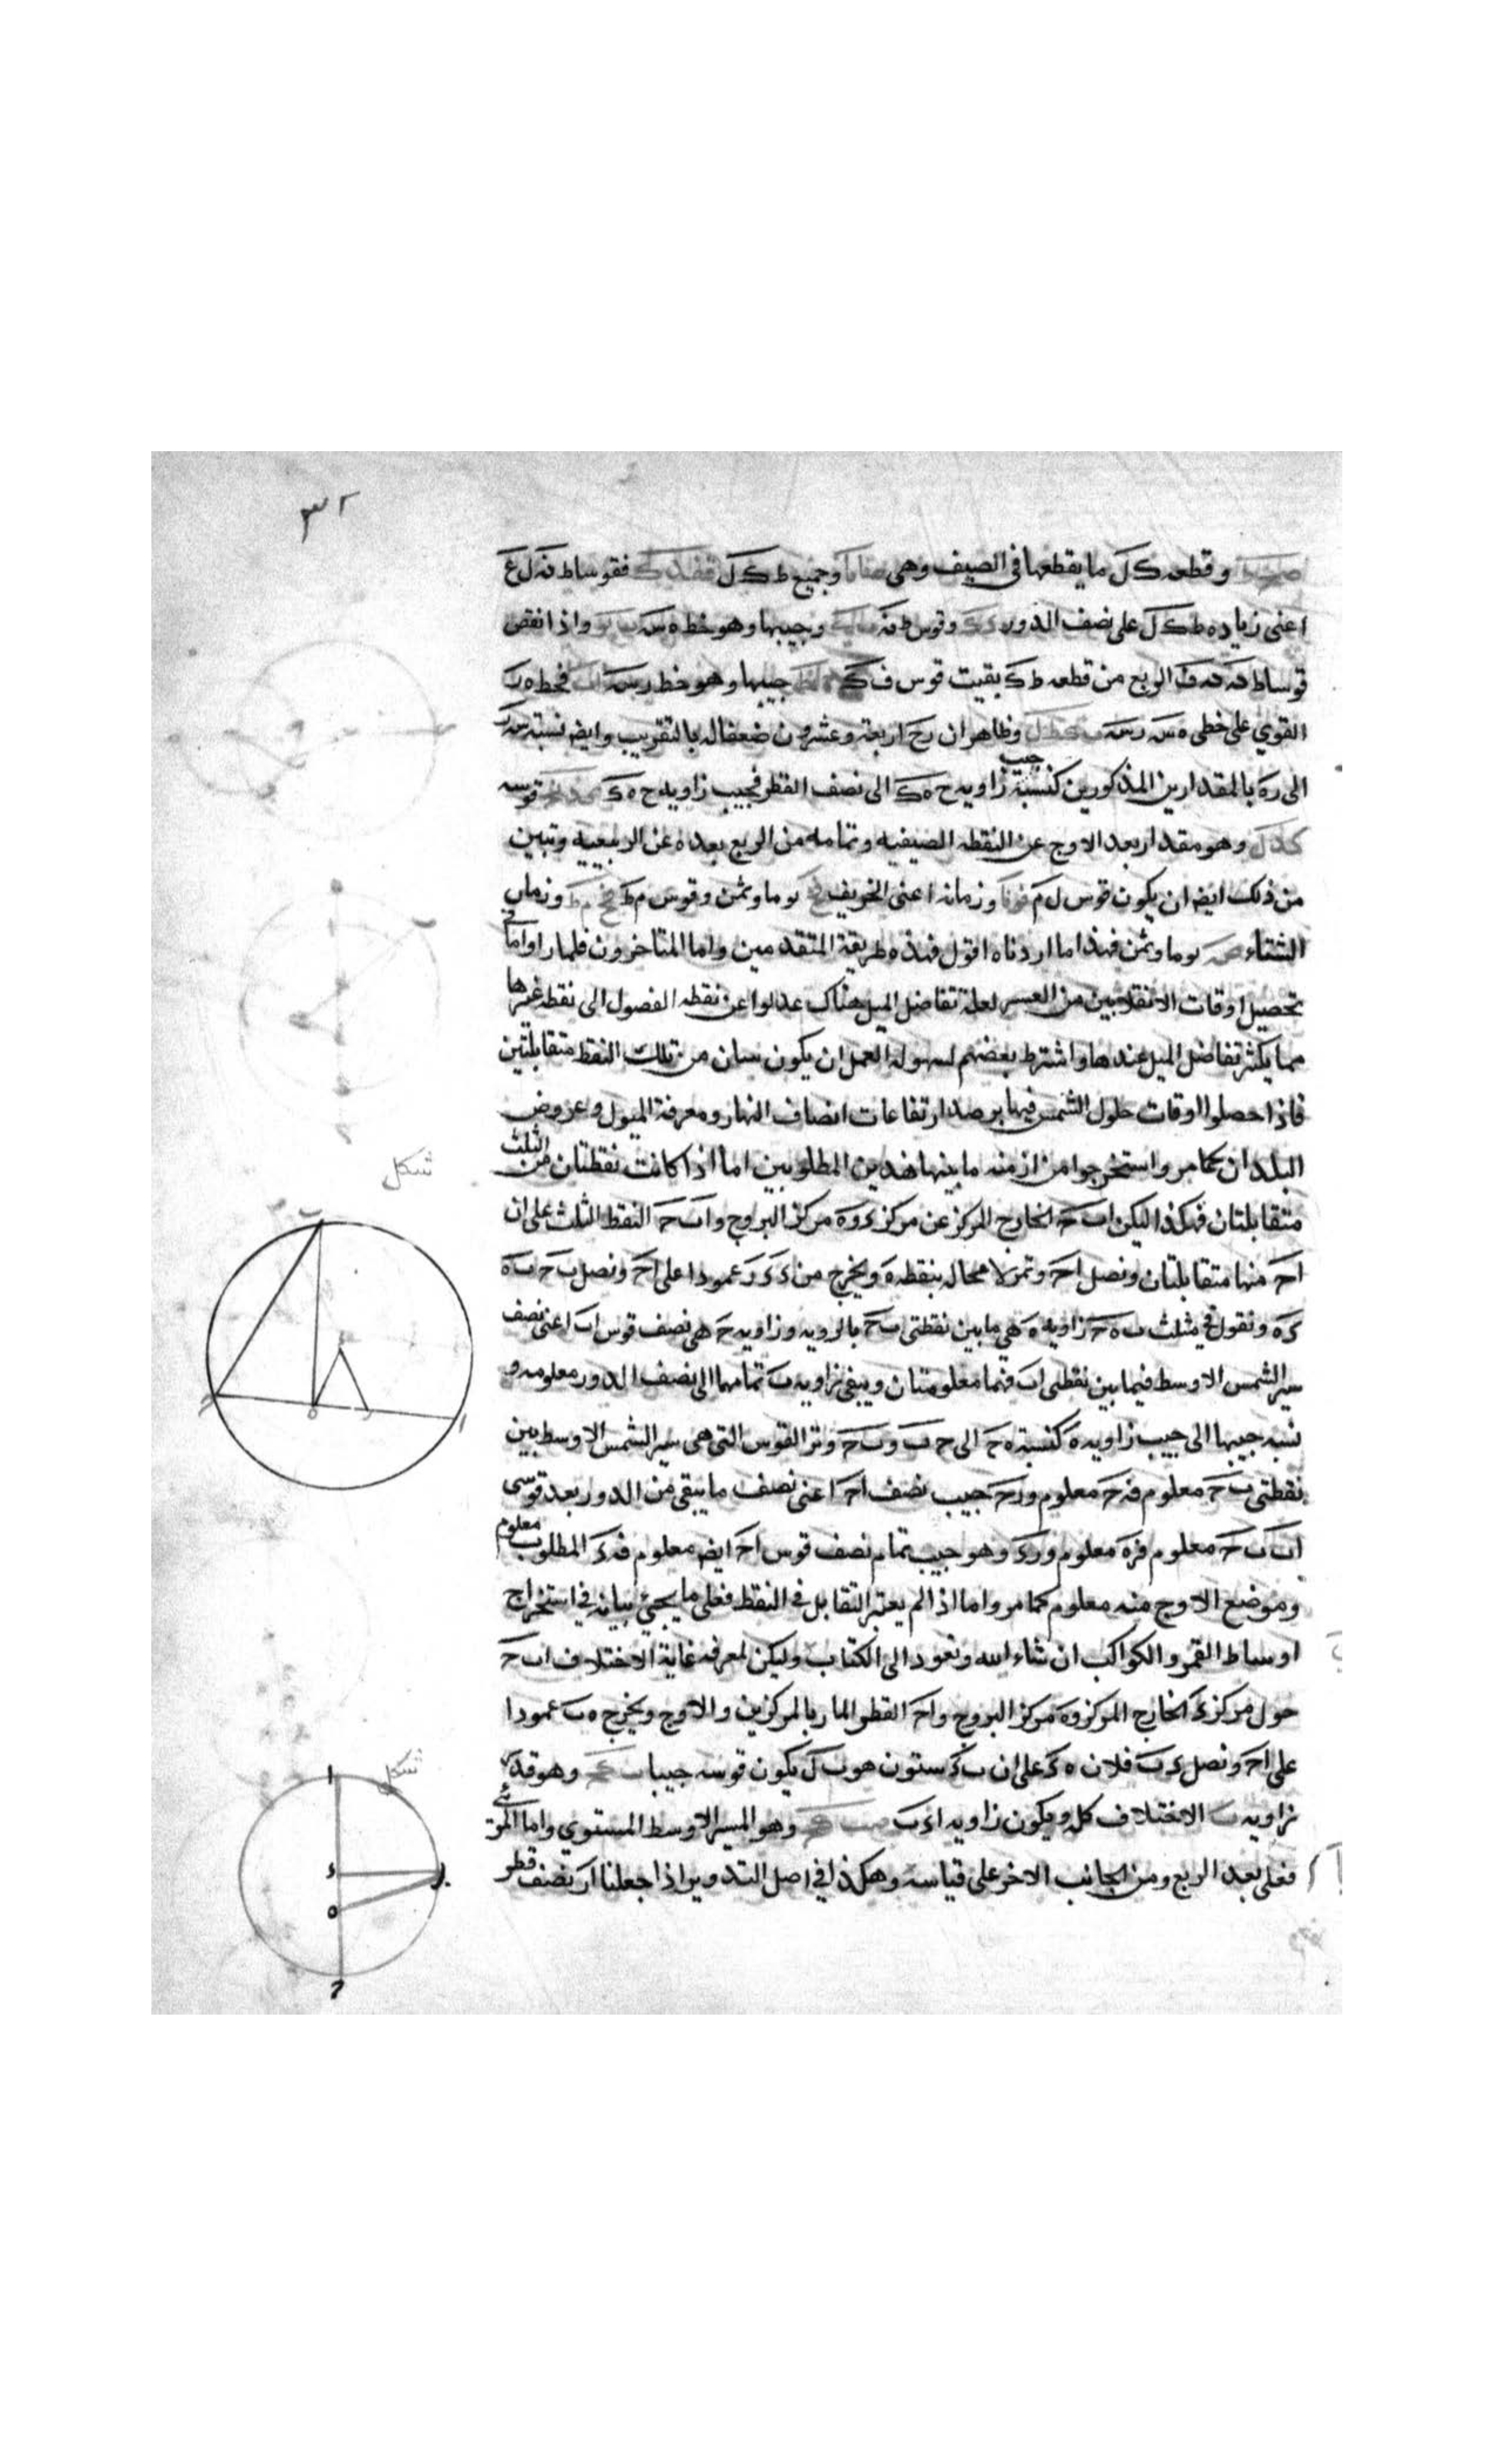 ٣٢
وقطعه ك ل ما يقطعها فى الصيف وهى وجميع ط ك ل فقوسا ط نه ل ع
اعنى زياده ط ك ل على نصف الدور وقوس ط نه وجيبها وهو خط ه س واذا نقص
قوسا ط نه الربع من قطعه ط ك بقيت قوس ف ك جيبها وهو خط ر س فخط ه ر
القوي على خطى ه س ر س وظاهر ان رح اربعة وعشرون ضعفا له بالتقريب وايضه نسبة س ر
الى ره بالمقدارين المذكورين كنسبة جيب زاويه ح ه ك الى نصف القطر فجيب زاويه ح ه ك قوسه
وهو مقدار بعد الاوج عن النقطه الصيفيه وتمامه من الربع بعده عن الربيعيه وتبين
من ذلك ايضه ان يكون قوس ل م وزمانه اعنى الخريف يوما وثمن وقوس م ط وزمان
الشتاء يوما وثمن فهذا ما اردناه اقول فهذه طريقة المتقدمين واما المتاخرون فلما راوا ما فى
تحصيل اوقات الانقلابين من العسر لعلة تفاضل الميل هناك عدلوا عن نقطه الفصول الى نقطه غيرها
مما يكثر تفاضل الميل عندها واشترط بعضهم لسهوله العمل ان يكون سان من تلك النقط متقابلتين
فاذا حصلوا اوقات حلول الشمس فيها برصد ارتفاعات انصاف النهار ومعرفة الميول وعروض
البلدان كما مر واستخرجوا من ازمنه ما بينها هذين المطلوبين اما اذا كانت نقطتان من الثلث
متقابلتان فهكذا ليكن اب ح الخارج المركز عن مركز ء و ه مركز البروج و اب ح النقط الثلث على ان
اح منها متقابلتان ونصل اح وتمر لا محاله بنقطه ه ويخرج من ء ء ر عمودا على اح ونصل ب ح ب ه
ء ه ونقول فى مثلث ب ه ح زاويه ه هى ما بين نقطتى ب ح بالرويه وزاويه ح هى نصف قوس اب اعنى نصف
سير الشمس الاوسط فيما بين نقطتى اب فهما معلومتان ويبقى زاويه ب تمامهما الى نصف الدور معلومه و
نسبه جيبها الى جيب زاويه ه كنسبة ه ح الى ح ب و ب ح وتر القوس التى هى سير الشمس الاوسط بين
نقطتى ب ح معلوم فه ح معلوم و رح جيب نصف اح اعنى نصف ما يبقى من الدور بعد قوسى
اب ب ح معلوم فره معلوم و رء وهو جيب تمام نصف قوس اح ايضه معلوم فه ء المطلوب معلوم
وموضع الاوج منه معلوم كما مر واما اذا لم يعتبر التقابل فى النقط فعلى ما يجئ بيانه فى استخراج
اوساط القمر والكواكب ان شاء الله ونعود الى الكتاب وليكن لمعرفه غاية الاختلاف اب ح
حول مركز ء الخارج المركز و ه مركز البروج و اح القطر المار بالمركزين والاوج ويخرج ه ب عمودا
على اح ونصل ء ب فلان ه ء على ان ب ء ستون هو ب ل يكون قوسه جيبا وهو قدر
زاويه ب الاختلاف كله ويكون زاويه اء ب وهو المسير الاوسط المستوي واما المرئى
فعلى بعد الربع ومن الجانب الاخر على قياسه وهكذا فى اصل التدوير اذا جعلنا ار نصف قطر
شكل
ب
ء
ح
ه
ر
ا
شكل
ا
ء
ب
ه
ح